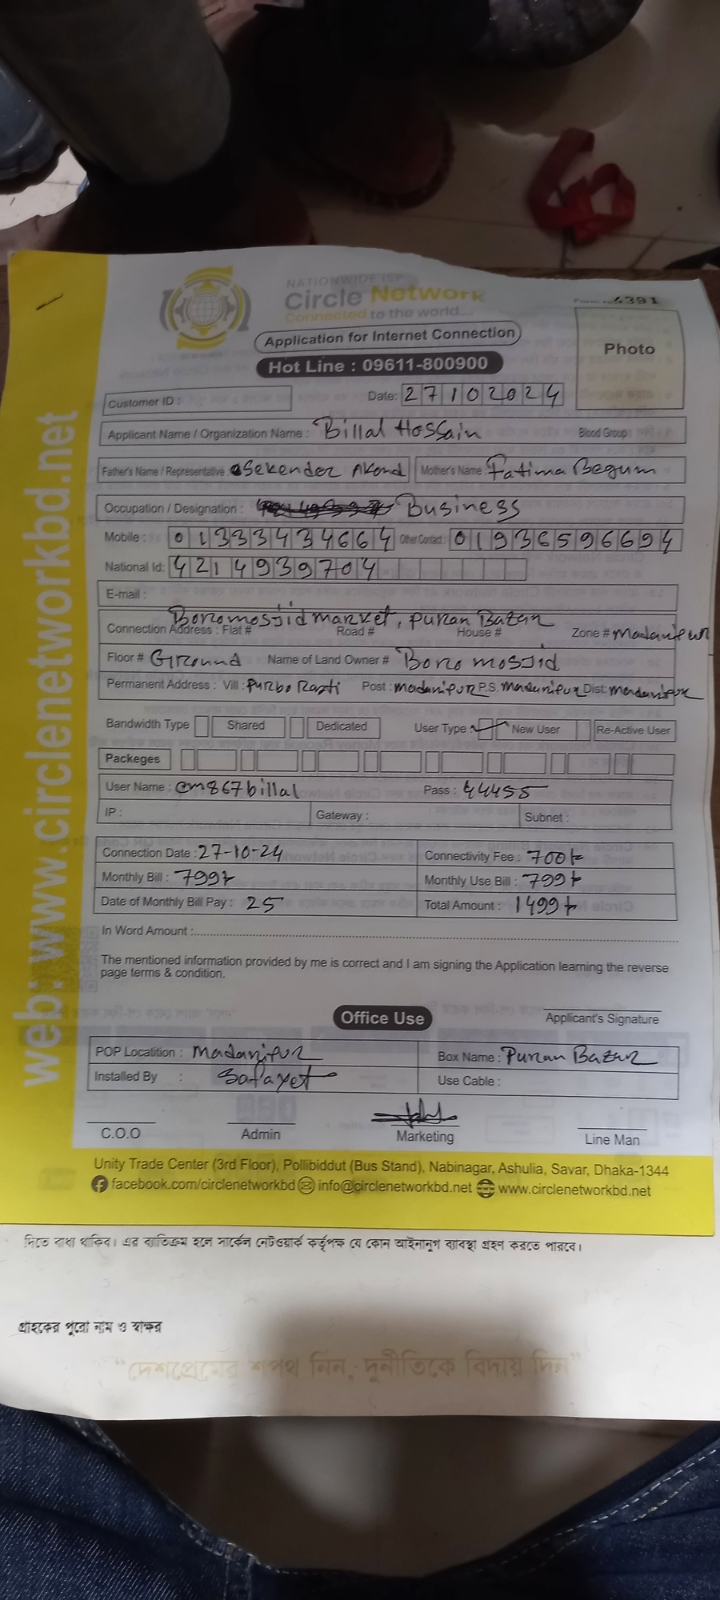 NATIONWIDE ISP
Circle Network
Connected to the world...
4391
Application for Internet Connection
Photo
Hot Line : 09611-800900
Customer ID :
Date: 27102024
Applicant Name / Organization Name : Billal Hossain Blood Group
Father's Name / Representative Sekender Akond Mother's Name Fatima Begum
Occupation / Designation : Business
Mobile : 01333434664 Other Contact : 01936596694
National Id: 4214939704
E-mail :
Boromosjid market, puran Bazar
Connection Address : Flat # Road # House # Zone # madaripur
Floor # Ground Name of Land Owner # Boro mosjid
Permanent Address : Vill : Purbo Rasti Post : madaripur P.S. madaripur Dist: madaripur
Bandwidth Type Shared Dedicated User Type New User Re-Active User
Packeges
User Name : cm867billal Pass : 44455
IP : Gateway : Subnet :
Connection Date : 27-10-24 Connectivity Fee : 700/-
Monthly Bill : 799/- Monthly Use Bill : 799/-
Date of Monthly Bill Pay : 25 Total Amount : 1499/-
In Word Amount :
The mentioned information provided by me is correct and I am signing the Application learning the reverse
page terms & condition.
Office Use
Applicant's Signature
POP Locatition : Madaripur Box Name : Puran Bazar
Installed By : Safayet Use Cable :
C.O.O Admin Marketing Line Man
Unity Trade Center (3rd Floor), Pollibiddut (Bus Stand), Nabinagar, Ashulia, Savar, Dhaka-1344
facebook.com/circlenetworkbd info@circlenetworkbd.net www.circlenetworkbd.net
web: www.circlenetworkbd.net
দিতে বাধ্য থাকিব। এর ব্যতিক্রম হলে সার্কেল নেটওয়ার্ক কর্তৃপক্ষ যে কোন আইনানুগ ব্যবস্থা গ্রহণ করতে পারবে।
গ্রাহকের পুরো নাম ও স্বাক্ষর
“দেশপ্রেমের শপথ নিন, দুর্নীতিকে বিদায় দিন”